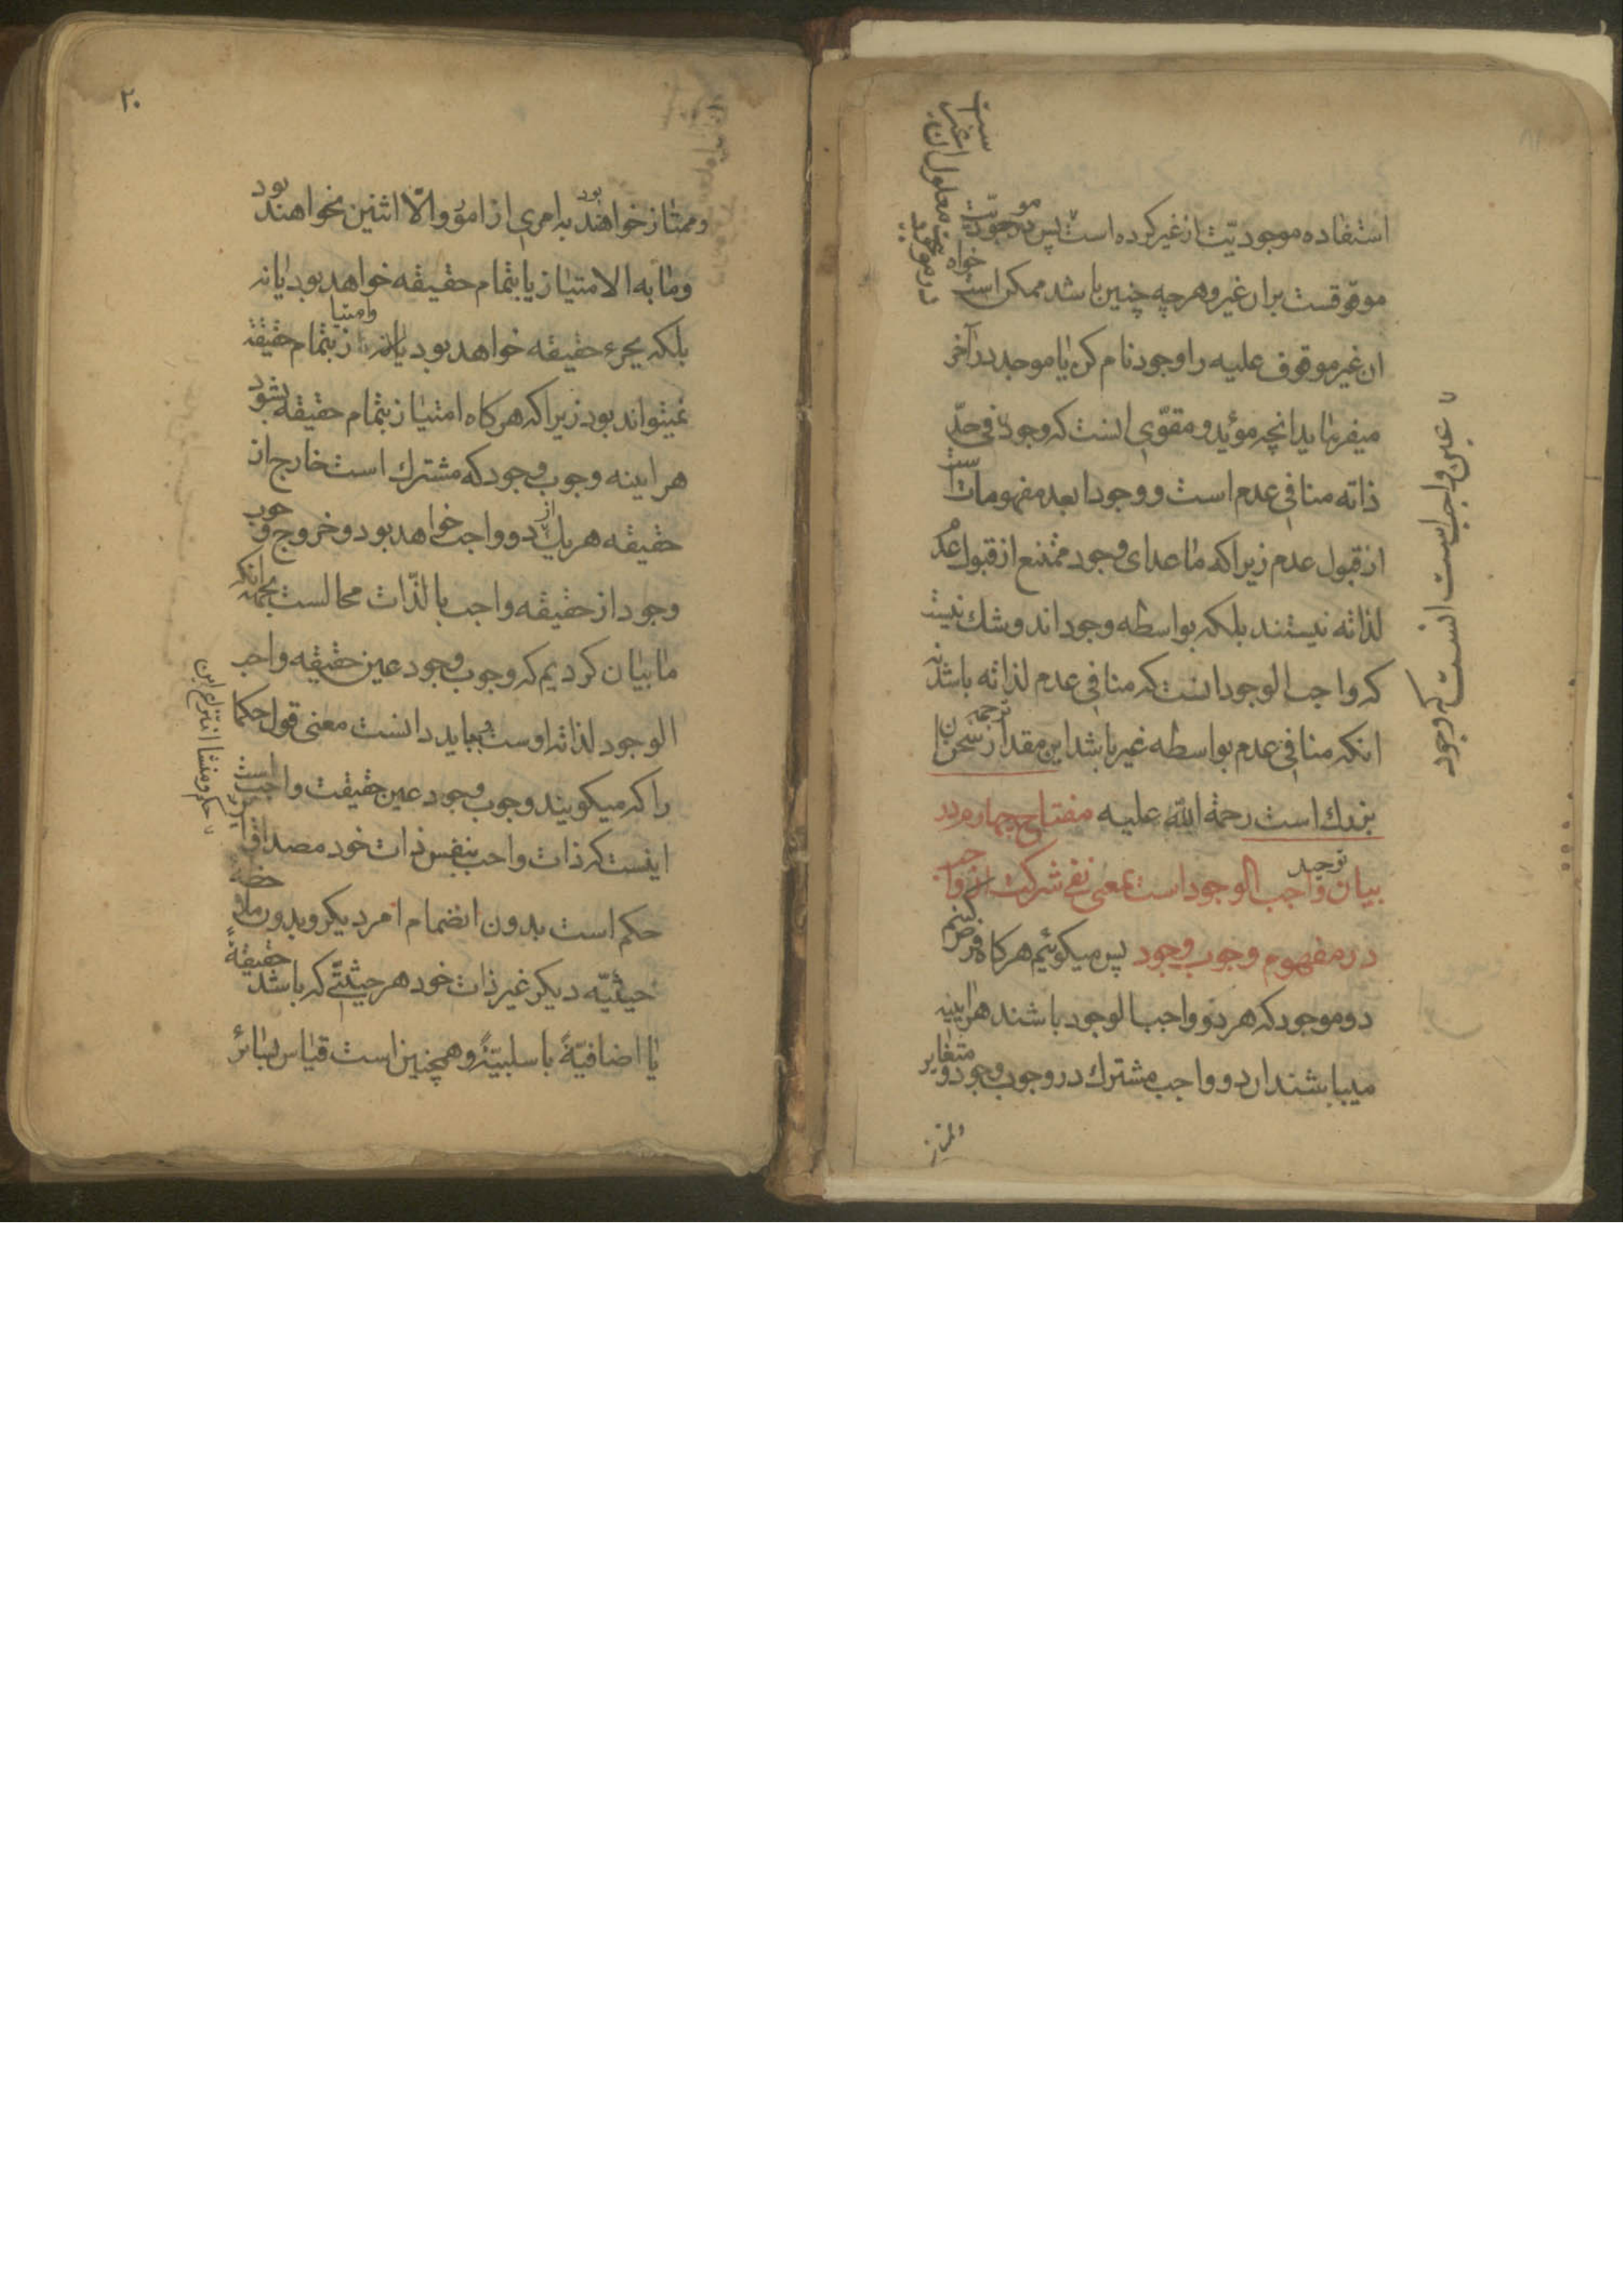 استفاده موجودیّت از غیر کرده است پس در موجودیّت
موقوفست بران غیر و هرچه چنین باشد ممکن است خواه
ان غیر موقوف علیه را وجود نام کن یا موجد در آخر
میفرماید انچه مؤید و مقوّی اینست که وجود فی حدّ
ذاته منافی عدم است و وجود ابعد مفهومات است
از قبول عدم زیرا که ماعدای وجود ممتنع از قبول عدم
لذاته نیستند بلکه بواسطه وجوداند و شک نیست
که واجب الوجود انست که منافی عدم لذاته باشد نه
انکه منافی عدم بواسطه غیر باشد این مقدار ترجمه سخن ان
بزرك است رحمة الله علیه مفتاح چهارم در
بیان توحید واجب الوجود است بمعنی نفی شرکت از واجب
در مفهوم وجوب وجود پس میکوئیم هرکاه فرض کنیم
دو موجود که هر دو واجب الوجود باشند هراینه
میباشند ان دو واجب مشترك در وجوب وجود و متغایر
و ممتاز
۷ عین واجب است انست که وجود
۲۰
و ممتاز خواهند بود به امری از امور و الّا اثنین نخواهند بود
و مابه الامتیاز یا بتمام حقیقه خواهد بود یا نه
بلکه بجزء حقیقه خواهد بود یا نه و امتیاز بتمام حقیقه
نمیتواند بود زیرا که هرکاه امتیاز بتمام حقیقه بشود
هراینه وجوب وجود که مشترك است خارج از
حقیقه هریك از دو واجب خواهد بود و خروج وجوب
وجود از حقیقه واجب بالذّات محالست بجهة انکه
ما بیان کردیم که وجوب وجود عین حقیقه واجب
الوجود لذاته اوست و بباید دانست معنی قول حکما
را که میکویند وجوب وجود عین حقیقت واجب است
اینست که ذات واجب بنفس ذات خود مصداق این
حکم است بدون انضمام امر دیکر و بدون ملاحضه
حیثیّه دیکر غیر ذات خود هر حیثیّتی که باشد حقیقیّة
یا اضافیّةً یا سلبیّةً و همچنین است قیاس سائر
۷ حکم و منشا انتزاع این